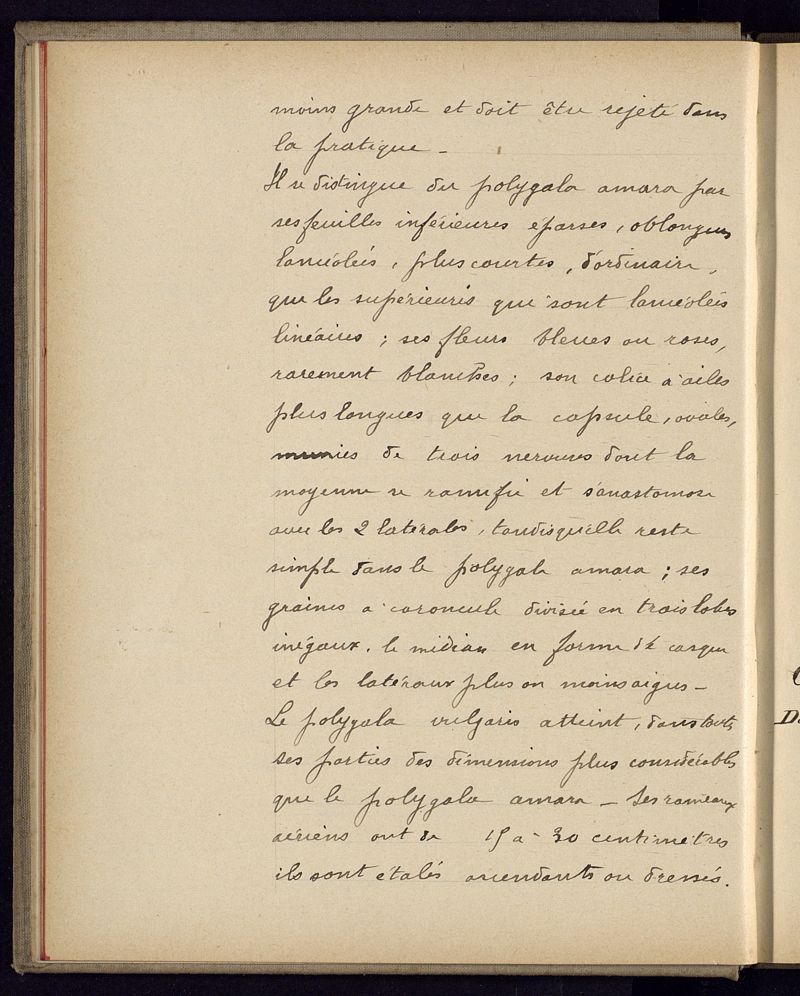 moins grande et doit être rejeté dans
la pratique –
Il se distingue du polygala amara par
ses feuilles inférieures eparses, oblongues
lancéolées, plus courtes, d'ordinaire,
que les supérieures que sont lancéolées
linéaires ; ses fleurs bleues ou roses,
rarement blanches ; son calice à ailes
plus longues que la capsule, ovales,
munies de trois nervures dont la
moyenne se ramifie et s'anastomose
avec les 2 latérales, tandis qu'elle reste
simple dans le polygala amara ; ses
graines a caroncule divisée en trois lobes
inégaux. le médian en forme de casque
et les latéraux plus ou moins aigus –
Le polygala vulgaris atteint, dans toutes
ses parties des dimensions plus considérables
que le polygala amara – Ses rameaux
aériens ont de 15 à 30 centimètres
ils sont étalés ascendants ou dressés.